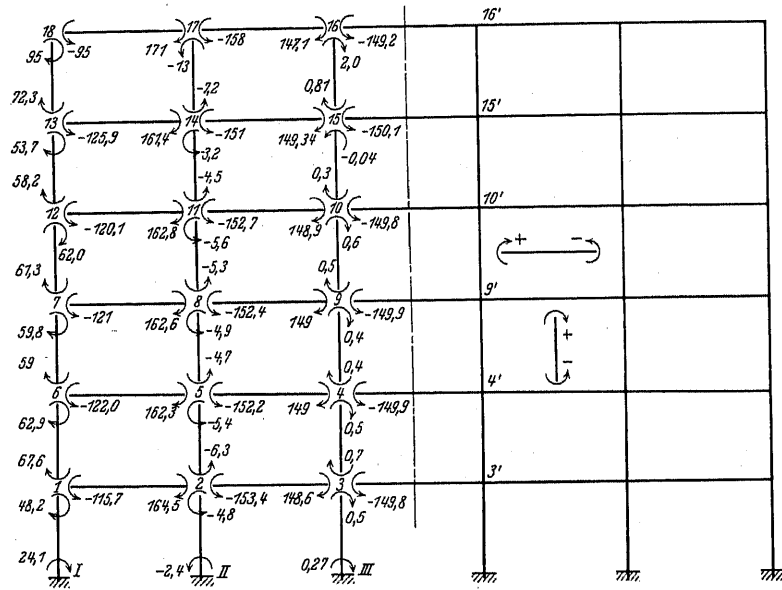 18 17 16 16'
-95 171 -158 147,1 -149,2
95 -13 2,0
72,3 -7,2 0,81
13 14 15 15'
-125,9 161,4 -151 149,34 -150,1
53,7 -3,2 -0,04
58,2 -4,5 0,3
12 11 10 10'
-120,1 162,8 -152,7 148,9 -149,8
62,0 -5,6 0,6
+ -
67,3 -5,3 0,5
7 8 9 9'
-121 162,6 -152,4 149 -149,9
59,8 -4,9 0,4
+
59 -4,7 0,4
-
6 5 4 4'
-122,0 162,3 -152,2 149 -149,9
62,9 -5,4 0,5
67,6 -6,3 0,7
1 2 3 3'
-115,7 164,5 -153,4 148,6 -149,8
48,2 -4,8 0,5
24,1 I -2,4 II 0,27 III